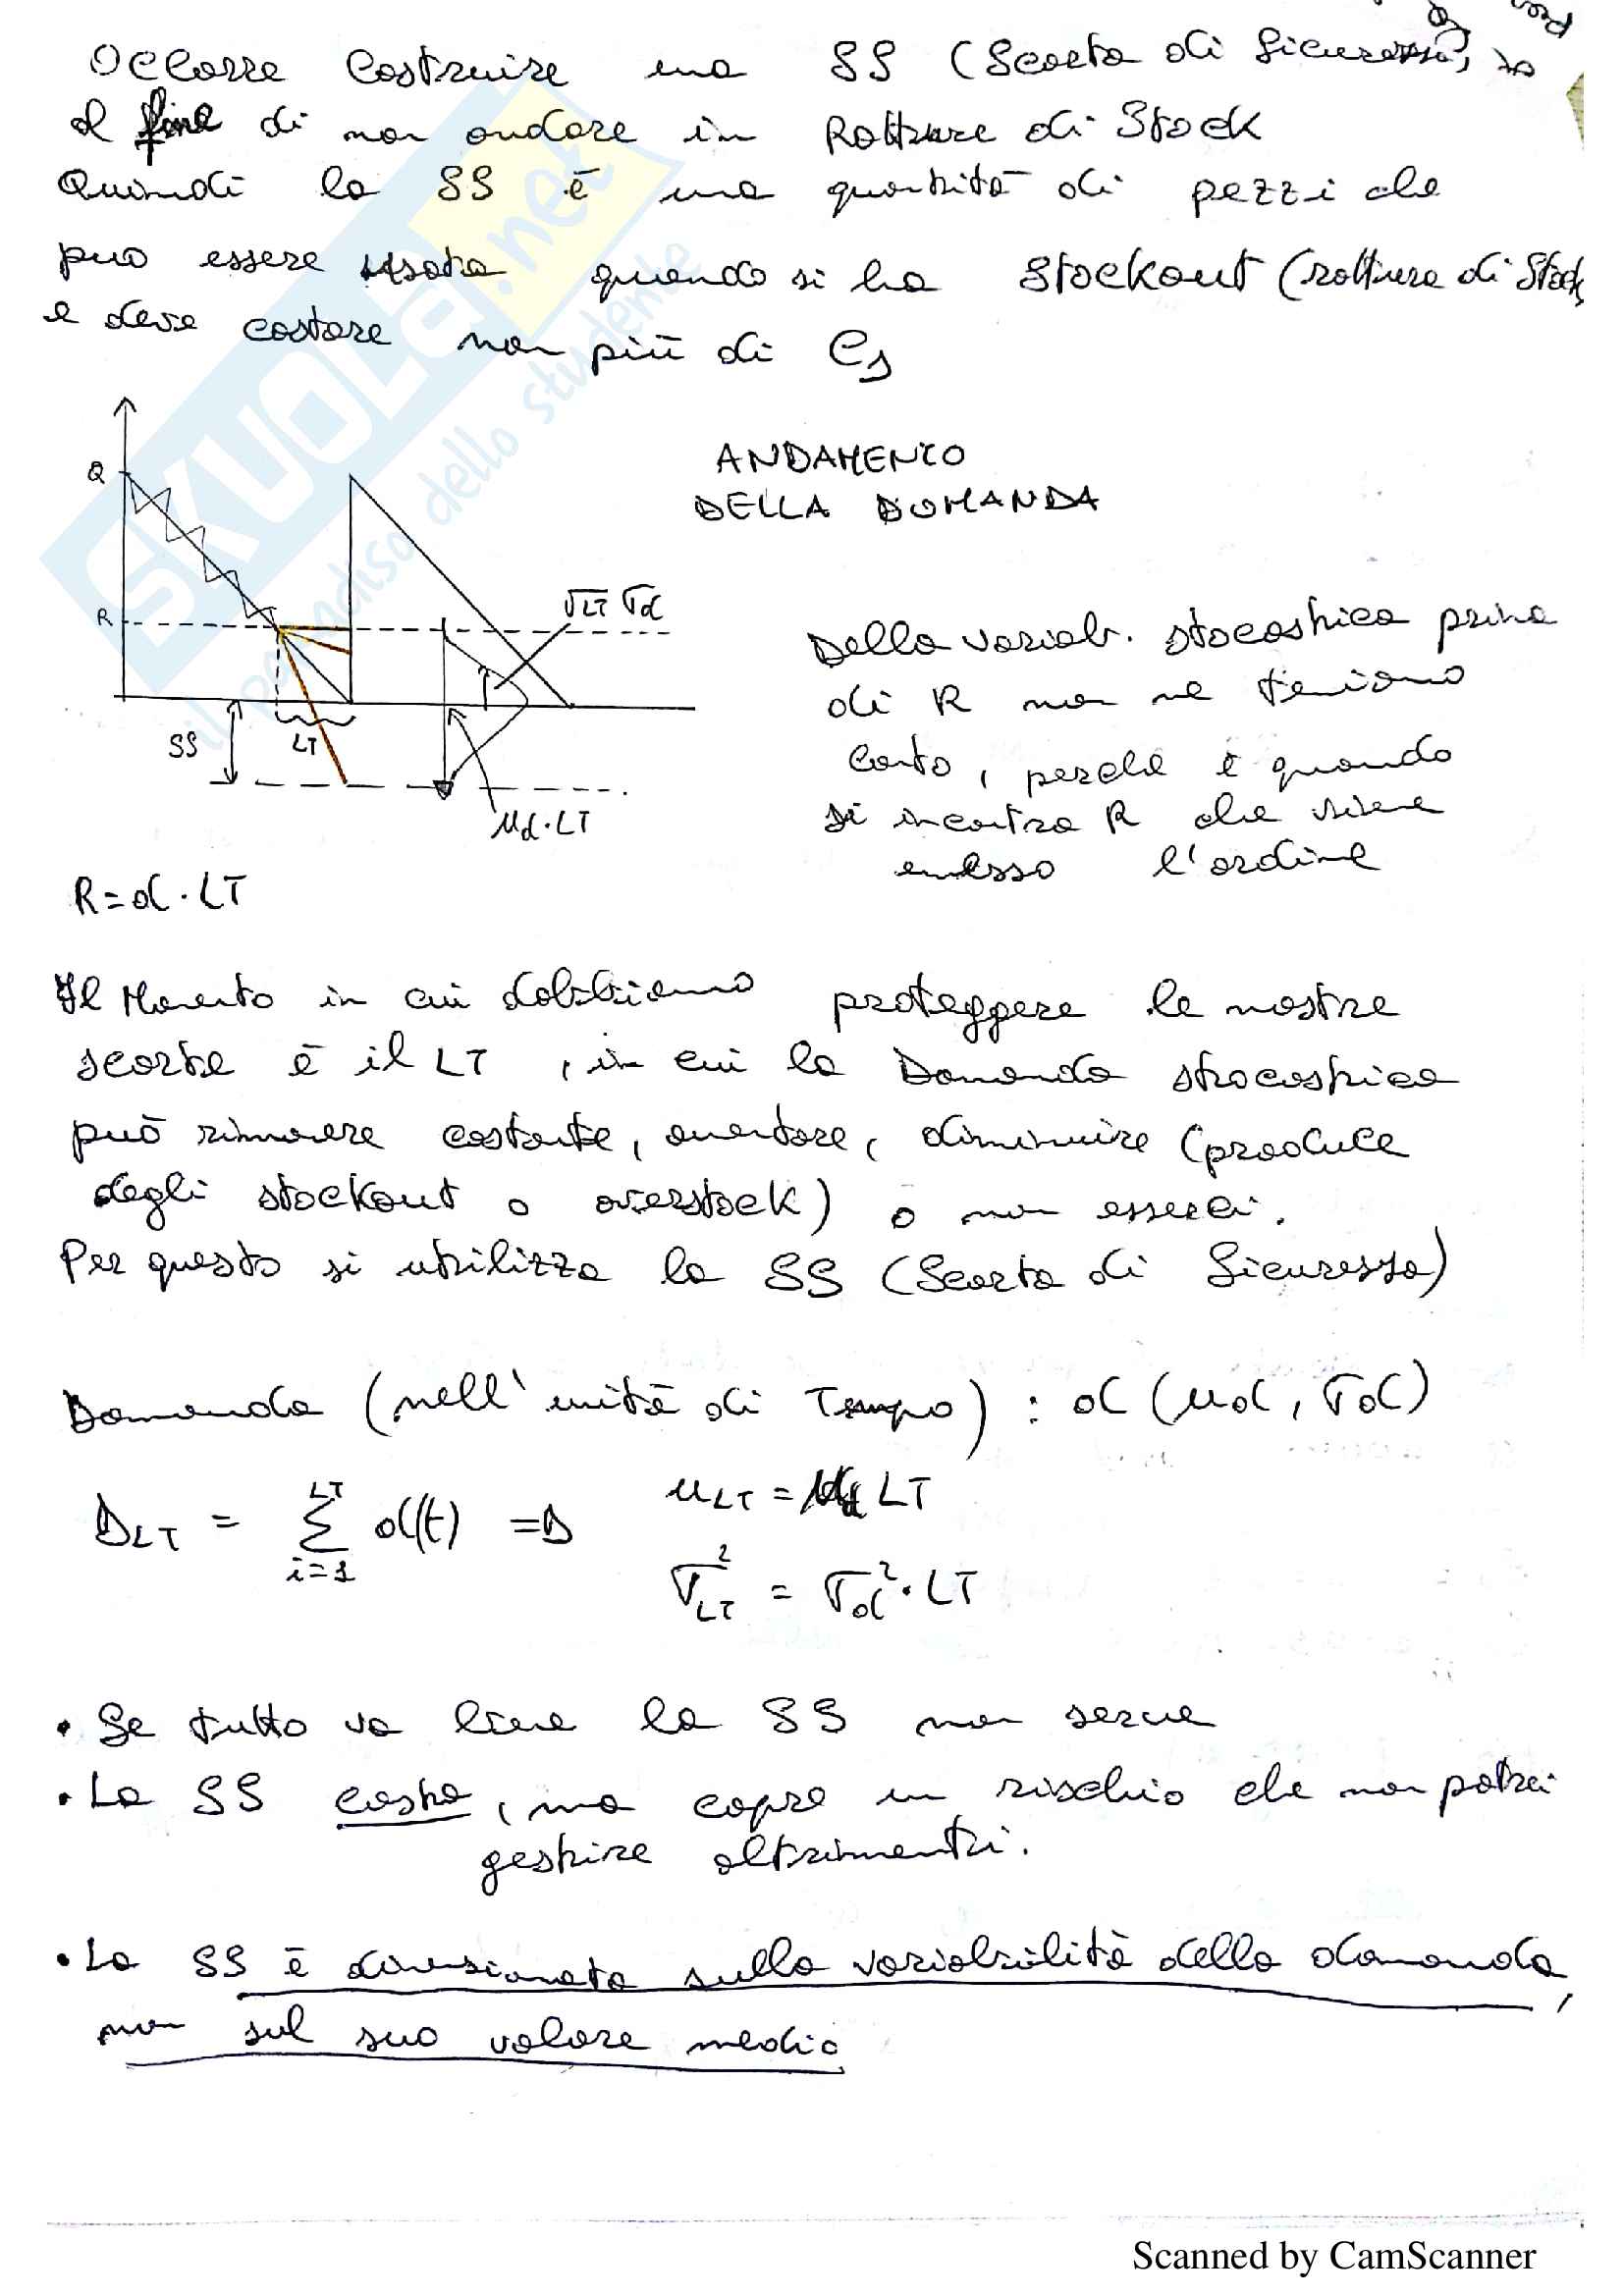 Occorre costruire una SS (Scorta di Sicurezza),
al fine di non andare in Rottura di Stock
Quindi la SS è una quantità di pezzi che
può essere usata quando si ha Stockout (rottura di Stock
e deve costare non più di Cs
ANDAMENTO
DELLA DOMANDA
Q
R
√LT σd
SS
LT
μd·LT
Della variab. stocastica prima
di R non ne teniamo
conto, perché è quando
si incontra R che viene
emesso l'ordine
R=d·LT
Il Momento in cui dobbiamo proteggere le nostre
scorte è il LT, in cui la Domanda stocastica
può rimanere costante, aumentare, diminuire (produce
degli stockout o overstock) o non esserci.
Per questo si utilizza la SS (Scorta di Sicurezza)
Domanda (nell'unità di Tempo) : d(μd, σd)
DLT = Σ LT i=1 d(t) =D μLT = μd LT
σ²LT = σd²·LT
• Se tutto va bene la SS non serve
• La SS costa, ma copre un rischio che non potrei
gestire altrimenti.
• La SS è dimensionata sulla variabilità della domanda,
non sul suo valore medio
SKUOLA.net
il paradiso dello studente
Scanned by CamScanner